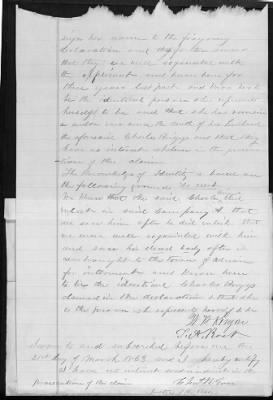 sign her name to the foregoing
declaration and says they swear
that they are well acquainted with
the applicant and have been for
three years last past and know her to
be the identical person she represents
herself to be and that she has remained
a widow ever since the death of her husband
the aforesaid Charles Briggs and that they
have no interest whatever in the prosecu-
tion of this claim
The knowledge of Identity is based on
the following grounds to wit
We knew that the said Charles did
enlist in said Company A that
we saw him after he did enlist that
we were well acquainted with him
and saw his dead body after it
was brought to this town of Adrian
for interment and know him
to be the identical Charles Briggs
named in the declaration & that she
is the person she represents herself to be
Sworn to and subscribed before me this
21st day of March 1863 and I hereby certify
I have no interest in the
Prosecution of this claim